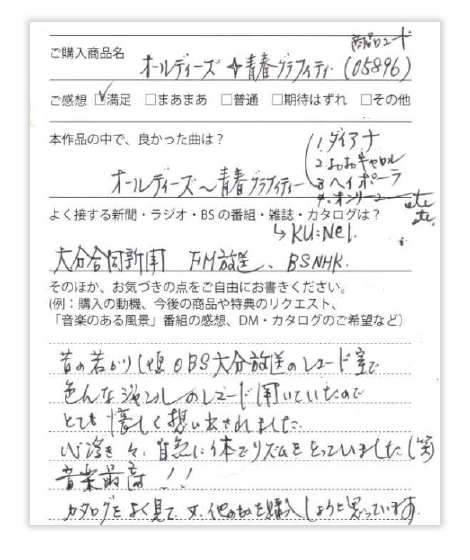 商品コード
ご購入商品名 オールディーズ☆青春グラフィティ (05896)
ご感想 ☑満足 □まあまあ □普通 □期待はずれ □その他
本作品の中で、良かった曲は?
オールディーズ〜青春グラフィティー
1.ダイアナ
2.おおキャロル
3.ヘイポーラ
4.オンリー
etc
etc.
よく接する新聞・ラジオ・BSの番組・雑誌・カタログは?
↳KU:Nel.
大分合同新聞 FM放送、BSNHK.
そのほか、お気づきの点をご自由にお書きください。
(例:購入の動機、今後の商品や特典のリクエスト、
「音楽のある風景」番組の感想、DM・カタログのご希望など)
昔の若かりし頃OBS大分放送のレコード室で
色んなジャンルのレコード聞いていたので
とても懐しく想い出されました.
心浮き々、自然に体でリズムをとっていました(笑)
音楽最高!!
カタログをよく見て又、他のも購入しようと思っています.